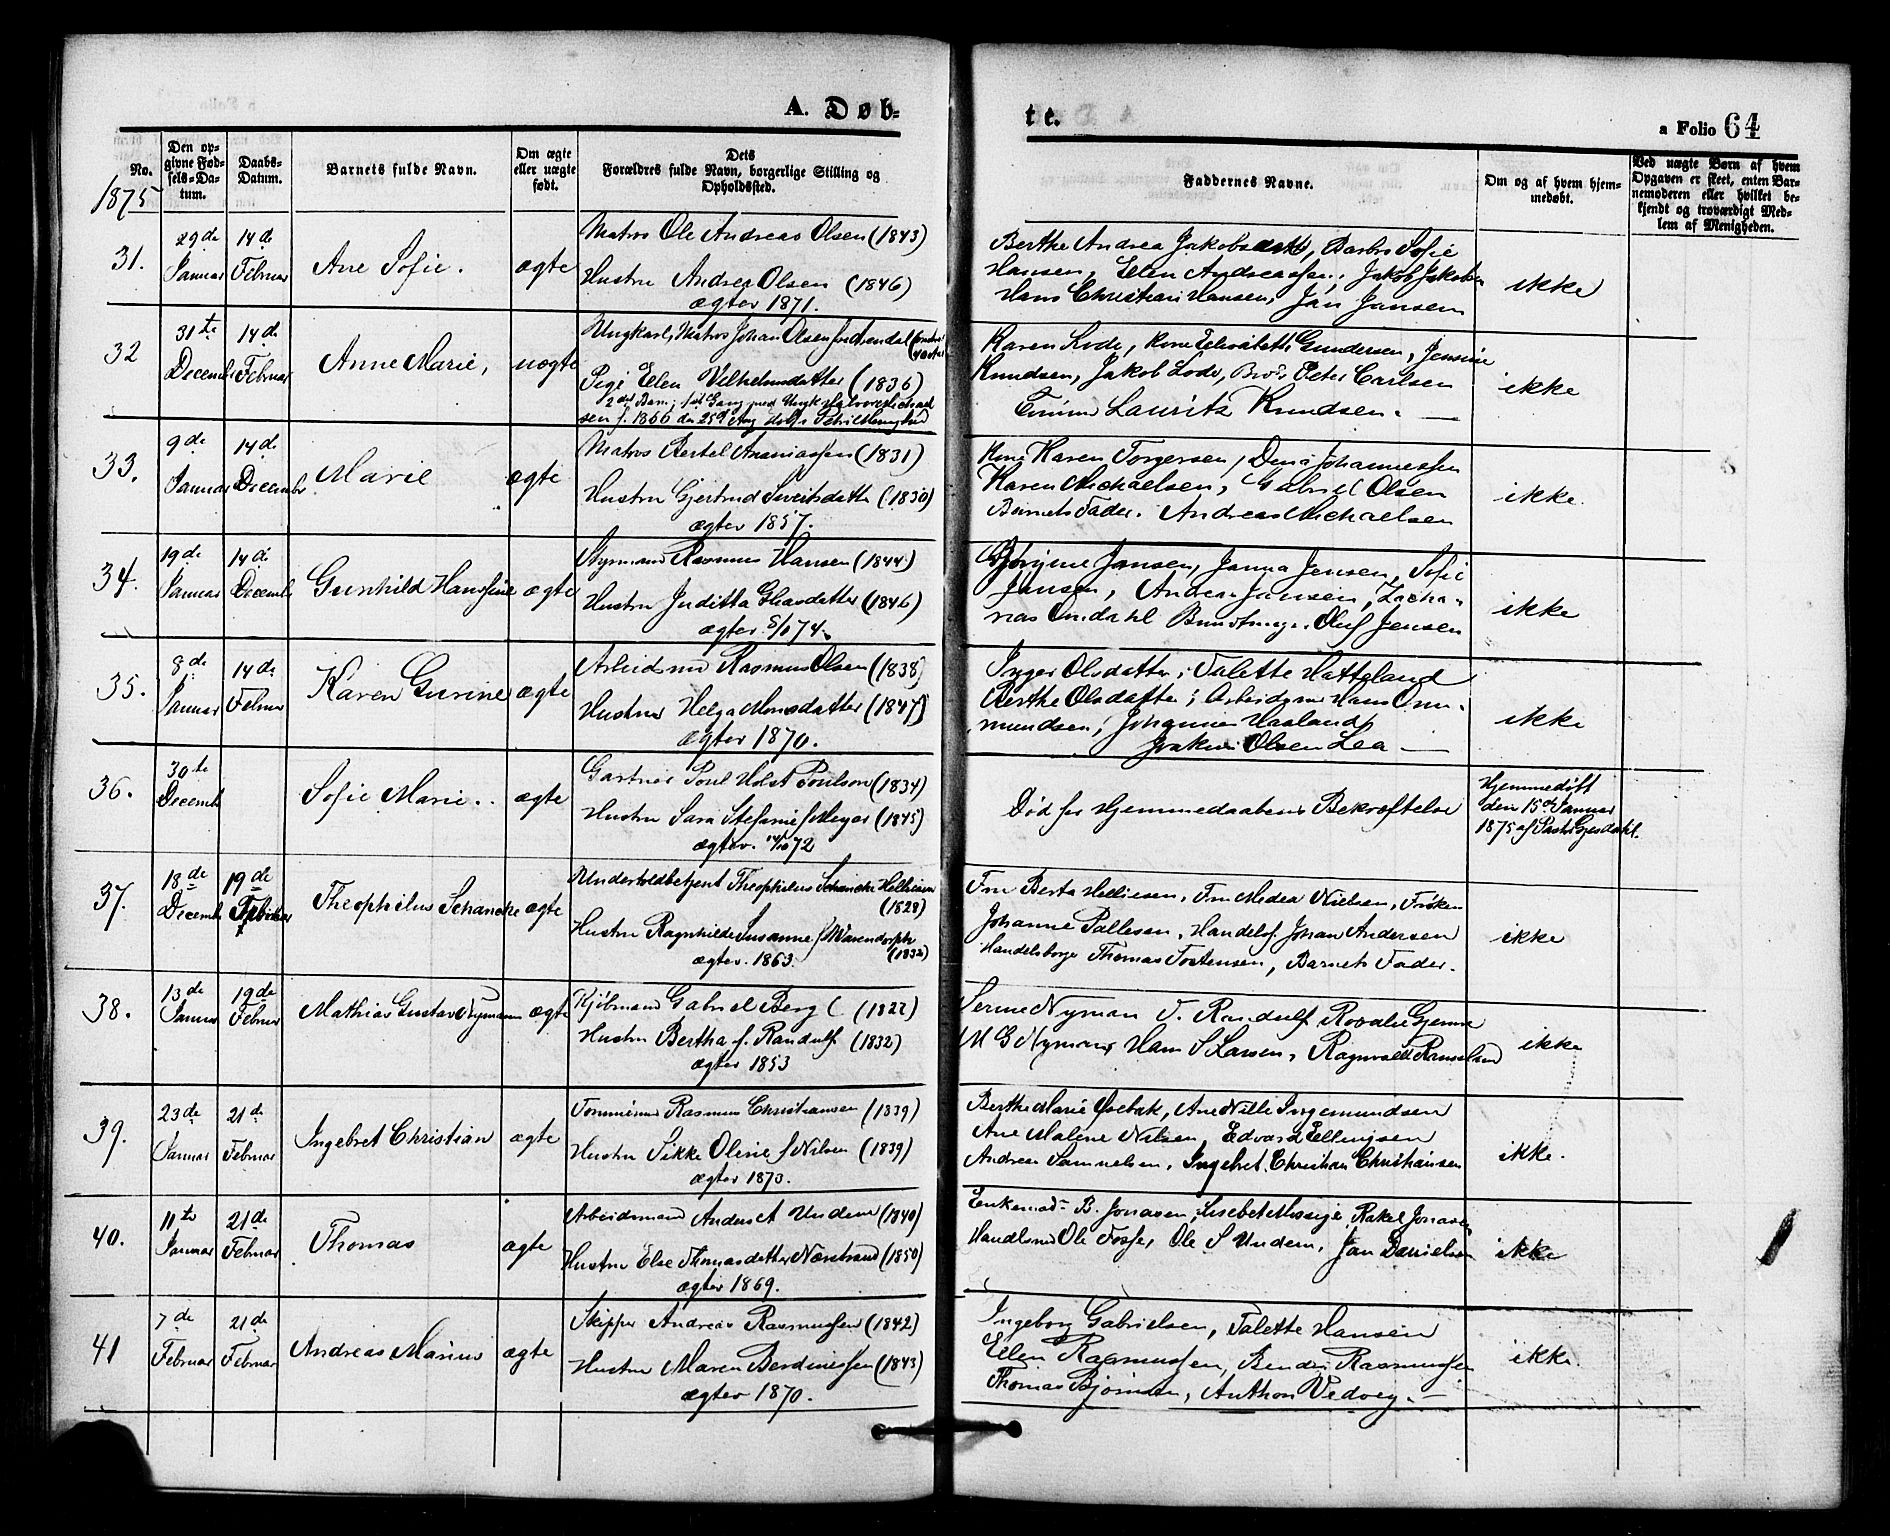 A. Døbte.
a Folio 64
No.
Den opgivne Fødsels-Datum.
Daabs-Datum.
Barnets fulde Navn.
Om ægte eller uægte født.
Dets Forældres fulde Navn, borgerlige Stilling og Opholdssted.
Faddernes Navne.
Om og af hvem hjemmedøbt.
Ved uægte Børn af hvem Opgaven er skeet, enten Barnemoderen eller hvilket bekjendt og troværdigt Medlem af Menigheden.
1875
31.
29de Januar
14de Februar
Ane Sofie.
ægte
Matros Ole Andreas Olsen (1843)
Hustru Andrea Olsen (1846)
ægtev 1871.
Berthe Andrea Jakobsdatt, Barbro Sofie
Hansen, Elen Andreassen, Jakob Jakobsen
Hans Christian Hansen, Jan Jansen
ikke
32
31te Decemb
14de Februar
Anne Marie,
uægte
Ungkarl, Matros Johan Olsen
Pige Elen Vilhelmsdatter (1836)
2det Barn,
Karen Lode, Gundersen, Jensine
Knudsen, Jakob Lode, Peter Carlsen
Lauritz Knudsen.
ikke
33.
9de Januar
14de December
Marie
ægte
Matros Bertel Ananiassen (1831)
Hustru Gjertrud Sivertsdatth (1830)
ægtev 1857.
Kone Karen Torgersen, Dena Johannessen
Karen Michaelsen, Gabriel Olsen
Barnets Fader. Andreas Michaelsen
ikke.
34.
19de Januar
14de Decemb
Gunhild Hansine
ægte
Styrmand Rasmus Hansen (1844)
Hustru Juditta Eliasdatter (1846)
ægtev 8/10 74.
Jørgine Jansen, Janna Jensen, Sofie
Jansen, Andreas Jansen, Zacha-
rias Omdahl Buntmager, Oluf Jensen
ikke
35.
8de Januar
14de Februar
Karen Gurine
ægte
Arbeidsmd Rasmus Olsen (1838)
Hustru Helga Monsdatter (1847)
ægtev 1870.
Inger Olsdatter, Talette Hatteland
Berthe Olsdatter, Arbeidsm Hans Om-
mundsen, Johannes Haaland,
Joakim Olsen Lea
ikke
36.
30te Decemb
Sofie Marie.
ægte
Gartner Poul Holst Poulson (1834)
Hustru Sara Stefanie f Meyer (1845)
ægtev. 14/10 72
Død før Hjemmedaabens Bekræftelse
Hjemmedøbt
den 15de Januar
1875 af Pastor Gjesdahl.
37.
18de Decemb
19de Februar
Theophilus Schancke
ægte
Underfoldbetjent Theophilus Schancke Helliesen
(1828)
Hustru Ragnhilde Susanne f Warendorph
ægtev. 1863. (1832)
Fru Berta Helliesen, Fru Medea Nielsen, Frøken
Johanne Pallesen, Handelsf. Johan Andersen
Handelsborger Thomas Tostensen, Barnets Fader.
ikke
38.
13de Januar
19de Februar
Mathias Gustav Nymann
ægte
Kjøbmand Gabriel Berg (1822)
Hustru Bertha f. Randulf (1832)
ægtev 1853
Serine Nyman F. Randulf Rosalie Gjemre
M G Nyman, Hans S Larsen, Ragnvald
ikke
39.
23de Januar
21de Februar
Ingebret Christian
ægte
Tømmermd Rasmus Christiansen (1839)
Hustru Sikke Oline f Nilsen (1839)
ægtev 1873.
Berthe Marie Øvebak, Ane Nille Ingemundsen
Ane Malene Nilsen, Edvard Ellingsen
Andreas Samuelsen, Ingebret Christian Christiansen
ikke.
40.
11te Januar
21de Februar
Thomas
ægte
Arbeidsmand Anders A Undem (1840)
Hustru Else Thomasdatter Nærstrand (1850)
ægtev 1869.
Enkemad B. Jonasen, Lisebet Missige, Rakel Jonasen
Handlsmd Ole Fosse, Ole S Undem, Jan Danielsen
ikke
41
7de Februar
21de Februar
Andreas Marius
ægte
Skipper Andreas Rasmussen (1842)
Hustru Maren Berdinessen (1843)
ægtev 1870.
Ingeborg Gabrielsen, Talette Hansen
Elen Rasmussen, Rasmussen
Thomas Bjørnsen, Anthon Vedvey.
ikke.